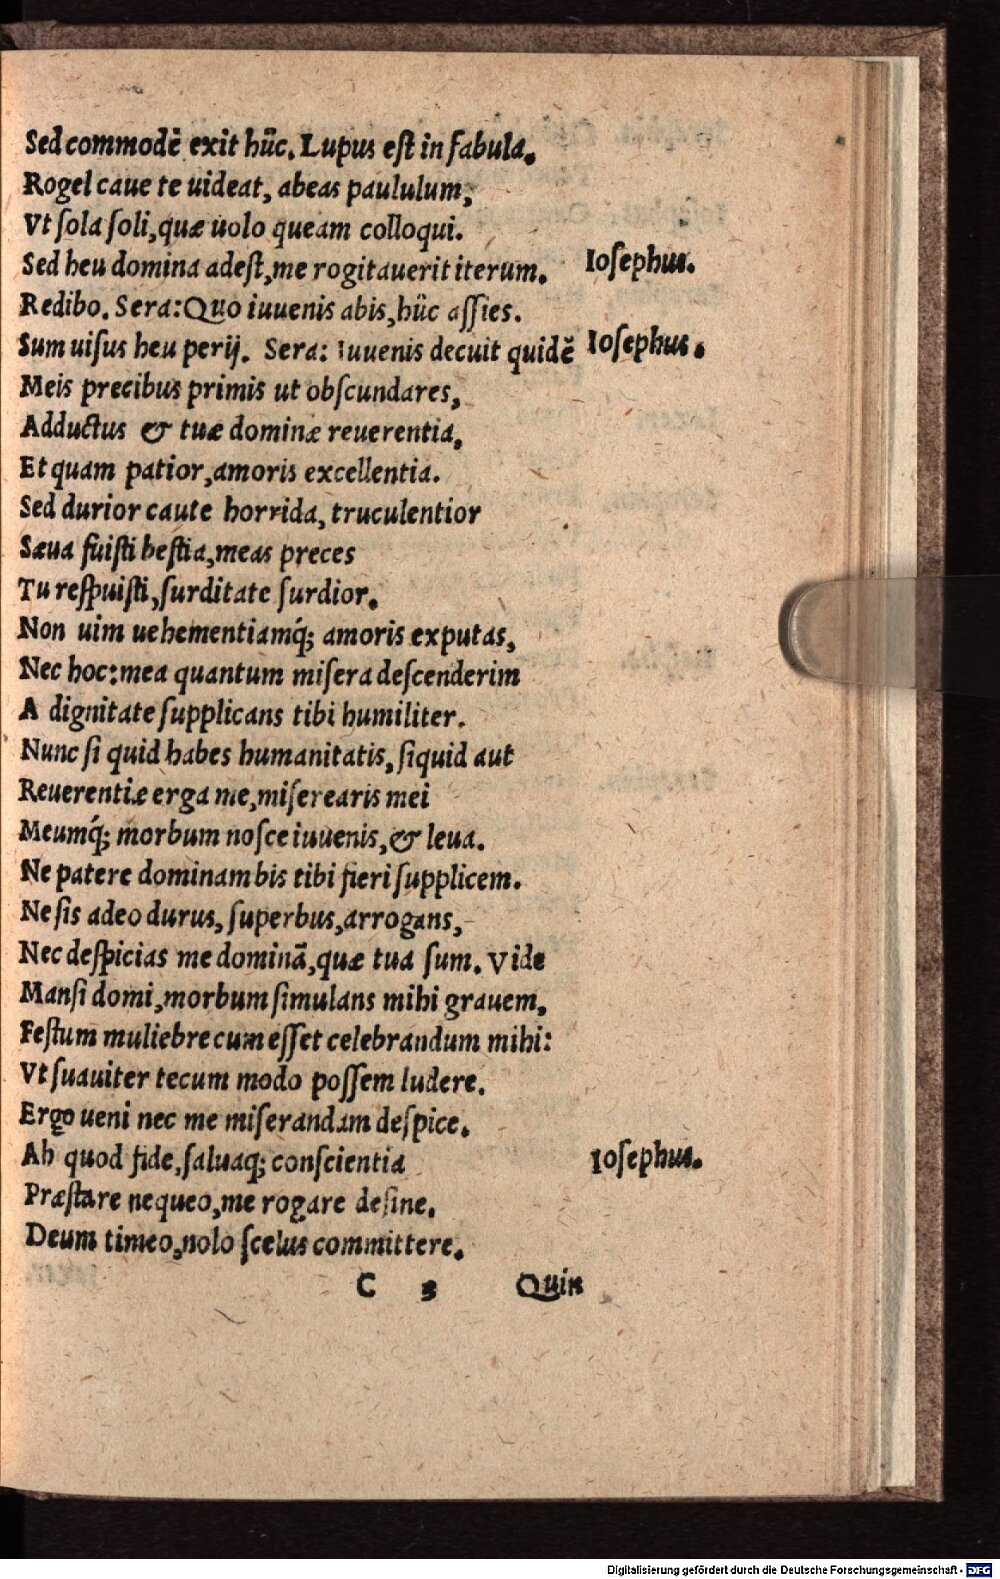 Sed commodē exit hūc. Lupus est in fabula.
Rogel caue te uideat, abeas paululum,
Vt sola soli, quæ uolo queam colloqui.
Sed heu domina adest, me rogitauerit iterum. Iosephus.
Redibo. Sera: Quo iuuenis abis, hūc assies.
Sum uisus heu perij. Sera: Iuuenis decuit quidē Iosephus.
Meis precibus primis ut obscundares,
Adductus & tuæ dominæ reuerentia,
Et quam patior, amoris excellentia.
Sed durior caute horrida, truculentior
Sæua fuisti bestia, meas preces
Tu respuisti, surditate surdior.
Non uim uehementiamq́; amoris exputas,
Nec hoc: mea quantum misera descenderim
A dignitate supplicans tibi humiliter.
Nunc si quid habes humanitatis, siquid aut
Reuerentiæ erga me, miserearis mei
Meumq́; morbum nosce iuuenis, & leua.
Ne patere dominam bis tibi fieri supplicem.
Ne sis adeo durus, superbus, arrogans,
Nec despicias me dominā, quæ tua sum. Vide
Mansi domi, morbum simulans mihi grauem,
Festum muliebre cum esset celebrandum mihi:
Vt suauiter tecum modo possem ludere.
Ergo ueni nec me miserandam despice.
Ah quod fide, saluaq; conscientia Iosephus.
Præstare nequeo, me rogare desine.
Deum timeo, nolo scelus committere.
C 3 Quin
Digitalisierung gefördert durch die Deutsche Forschungsgemeinschaft - DFG